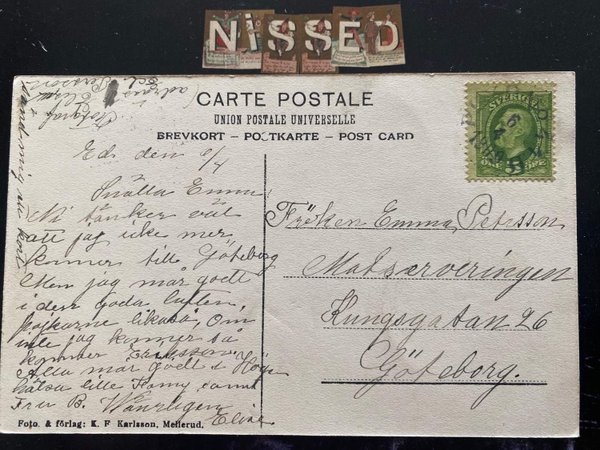 NiSSED
CARTE POSTALE
UNION POSTALE UNIVERSELLE
BREVKORT – POSTKARTE – POST CARD
SVERIGE
Ed. den 6/4
Snälla Emma
Ni tänker väl
att jag icke mer
kommer till Göteborg
Men jag mår godt
i den goda luften,
pojkarne likaså, Om
inte jag kommer så
kommer
Alla mår godt i
hälsa lille samt
Fru B. Vänligen
Elise
Fröken Emma Petersson
Matserveringen
Kungsgatan 26
Göteborg.
adress
Fotograf
Persson
sänd mig ett kort
Foto. & förlag: K. F Karlsson, Mellerud.